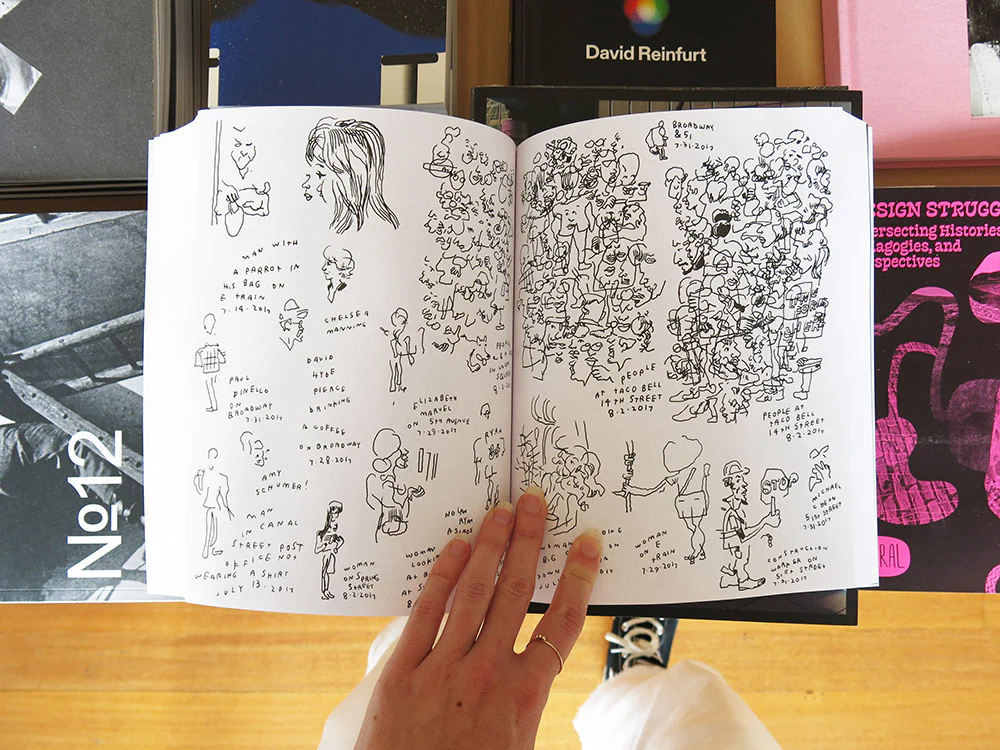 David Reinfurt
No12
MAN WITH
A PARROT IN
HIS BAG ON
E TRAIN
7.14.2017
CHELSEA
MANNING
DAVID
HYDE
PIERCE
DRINKING
A COFFEE
ON BROADWAY
7.28.2017
PAUL
DINELLO
ON
BROADWAY
7.31.2017
ELIZABETH
MARVEL
ON 5TH AVENUE
7.29.2017
PEOPLE
8.2.2017
AMY
SCHUMER!
MAN
IN CANAL
STREET POST
OFFICE NOT
WEARING A SHIRT
JULY 13. 2017
WOMAN
ON SPRING
STREET
8.2.2017
WOMAN
RYAN
BROADWAY
& 51
7.31.2017
PEOPLE
AT TACO BELL
14TH STREET
8.2.2017
PEOPLE AT
TACO BELL
14TH STREET
8.2.2017
WOMAN
ON
TRAIN
7.29.2017
STOP
MICHAEL
CHE ON
51ST STREET
7.31.2017
CONSTRUCTION
WORKER ON
51ST STREET
7.31.2017
SIGN STRUGG
ersecting Histories
agogies, and
spectives
RAL